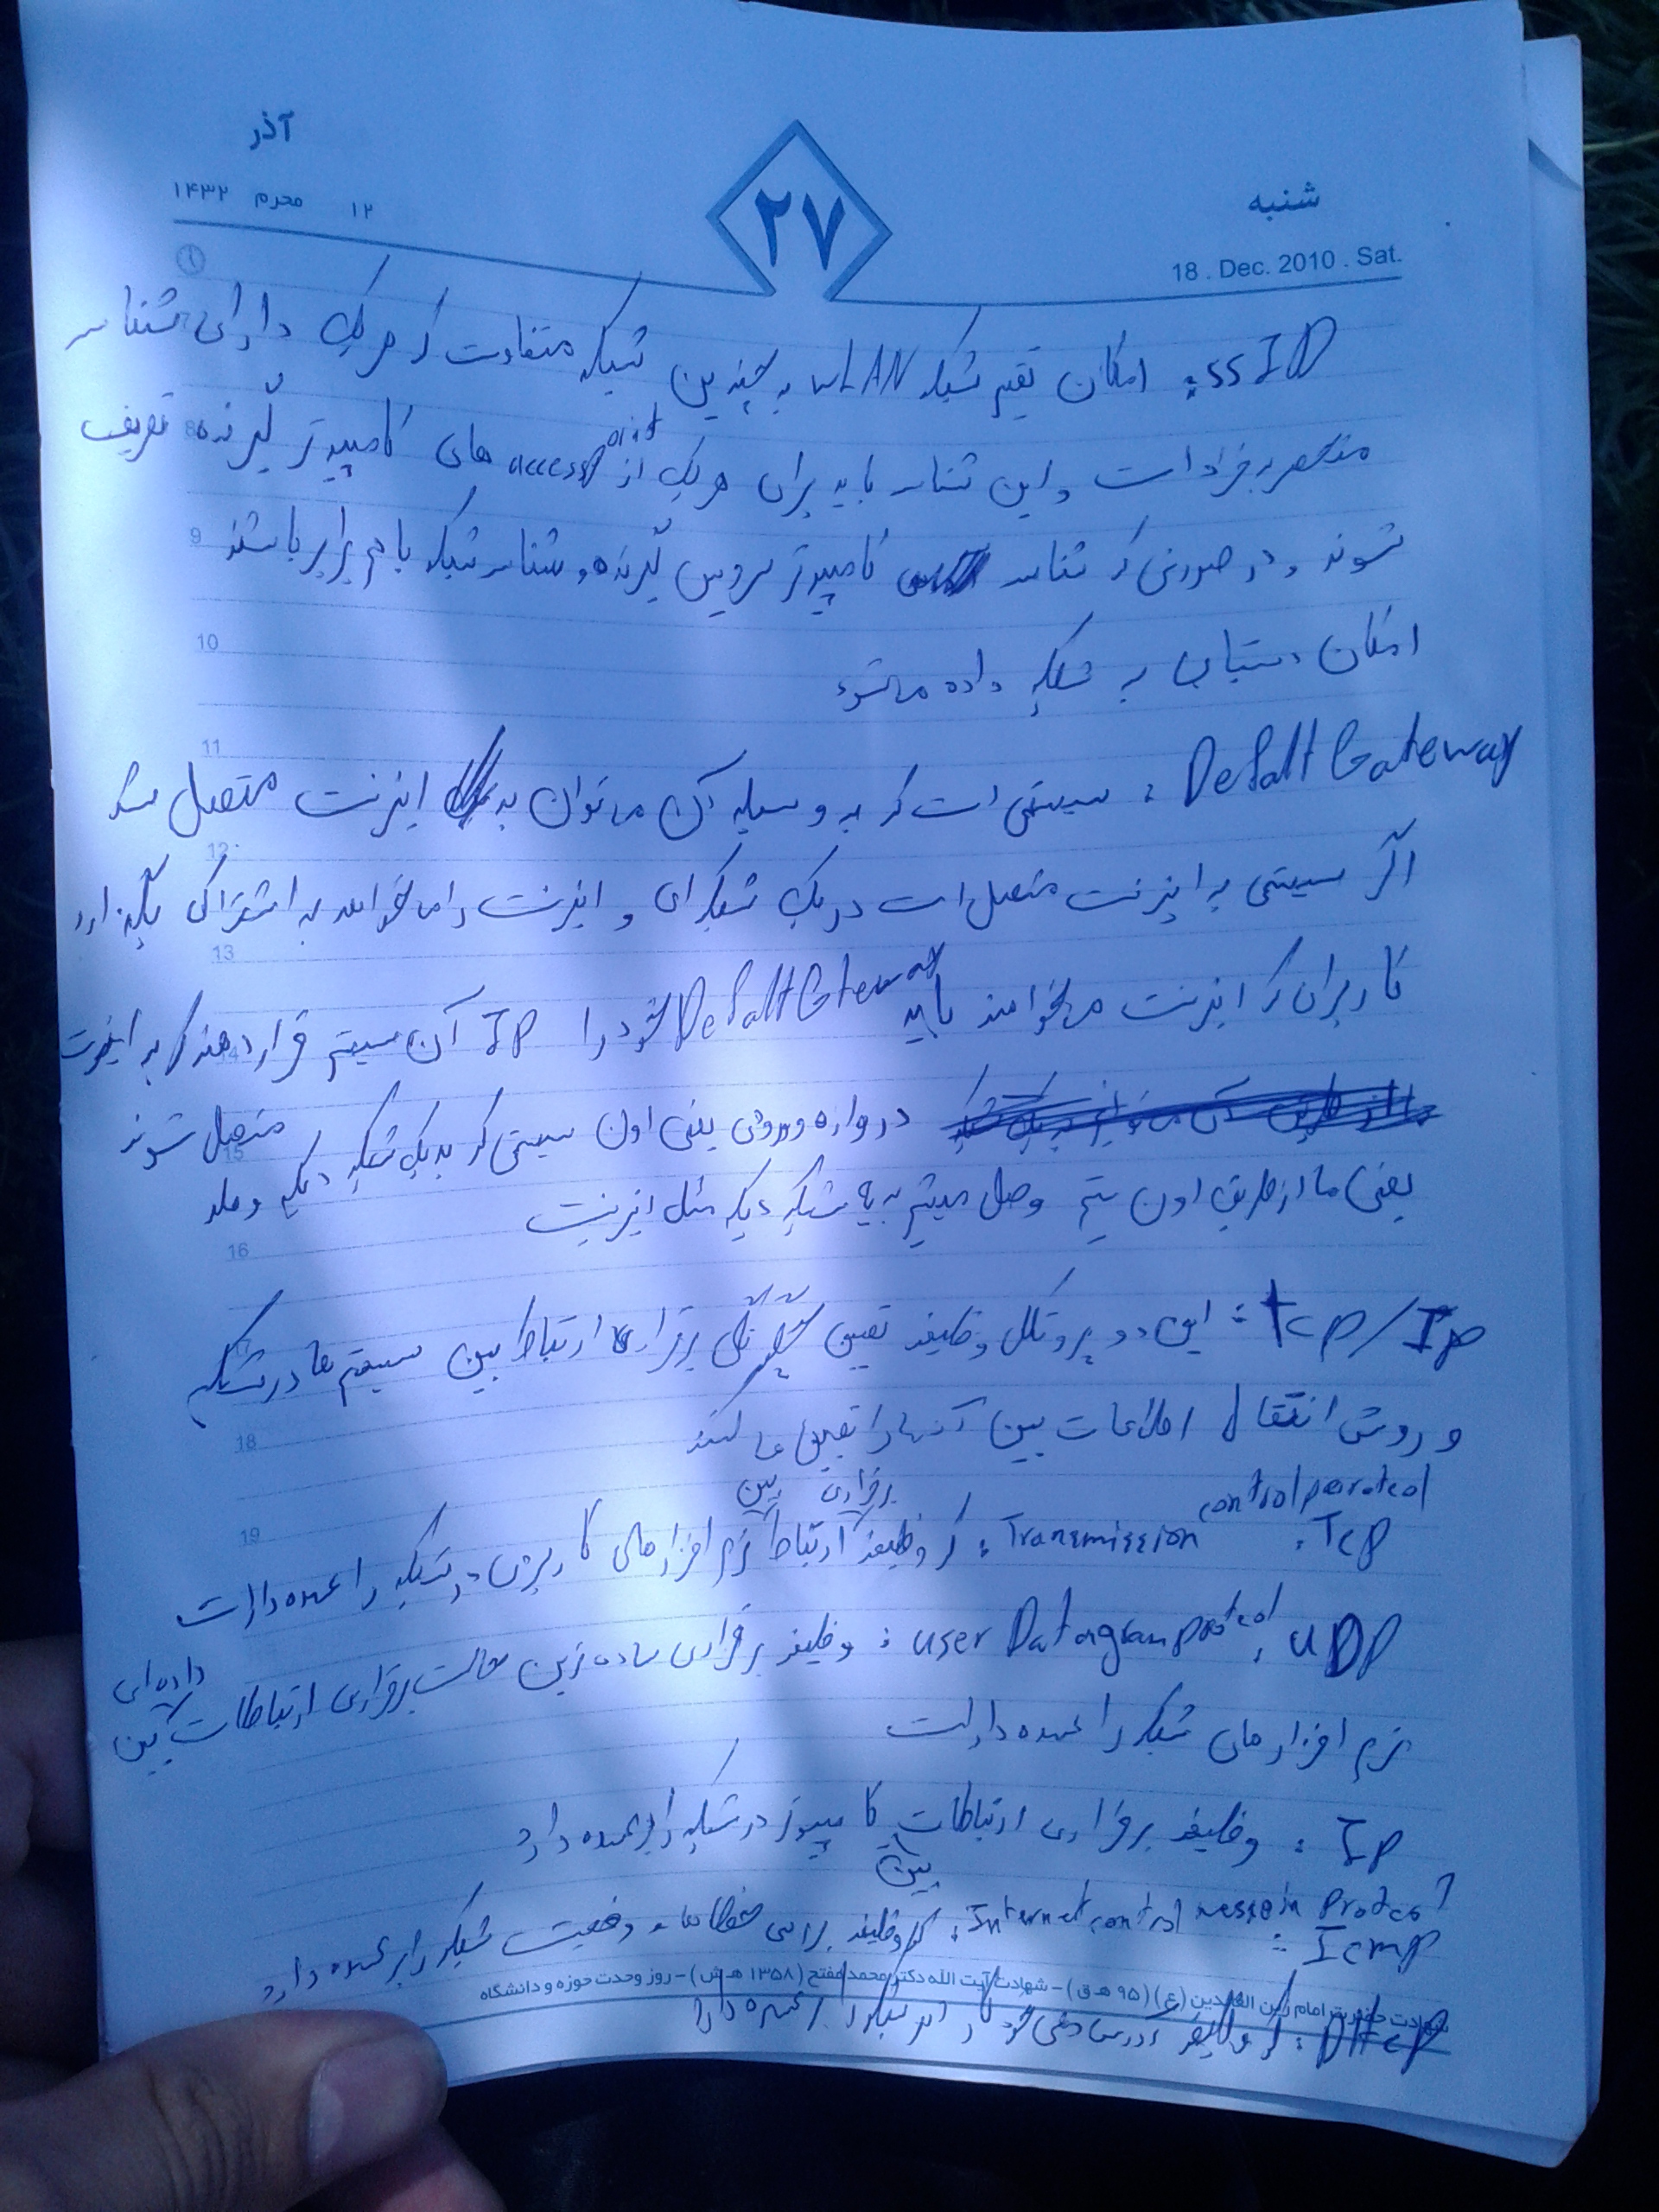 آذر
۲۷
شنبه
۱۲ محرم ۱۴۳۲
18 . Dec. 2010 . Sat.
SSID : امکان تقیم شبکه WLAN به چندین شبکه متفاوت که هر یک دارای شناسه
8 منحصر بفرد است و این شناسه باید برای هر یک از access point های کامپیوتر گیرنده تعریف
9 شوند و در صورتی که شناسه کامپیوتر سرویس گیرنده و شناسه شبکه با هم برابر باشند
10 امکان دستیابی به شبکه داده می شود
11 Defalt Gateway : سیستمی است که به وسیله آن می توان به اینترنت متصل شد
12 اگر سیستمی به اینترنت متصل است در یک شبکه ای و اینترنت را می خواهد به اشتراک بگذارد
13 کاربران که اینترنت می خواهند باید Defalt Gateway خود را IP آن سیستم قرار دهند که به اینترنت
14 متصل شوند
15 دروازه ورودی یعنی اون سیستمی که به یک شبکه دیگه وصله
یعنی ما از طریق اون سیستم وصل میشیم به یه شبکه دیگه مثل اینترنت
16
17 tcp/Ip : این دو پروتکل وظیفه تعیین چگونگی برقراری ارتباط بین سیستم ها در شبکه
18 و روش انتقال اطلاعات بین آنها را تعیین می کنند
19 TCP : Transmission control : که وظیفه برقراری ارتباط بین نرم افزارهای کاربردی در شبکه را عهده دار است
UDP : user Datagram : وظیفه برقراری ساده ترین حالت برقراری ارتباطات داده ای بین
نرم افزار های شبکه را عهده دار است
IP : وظیفه برقراری ارتباطات بین کامپیوتر در شبکه را بر عهده دارد
Icmp : Internet control : که وظیفه بررسی خطاها و وضعیت شبکه را بر عهده دارد
شهادت حضرت امام زین العابدین (ع) (۹۵ هـ ق) – شهادت آیت الله دکتر محمد مفتح (۱۳۵۸ هـ ش) – روز وحدت حوزه و دانشگاه
DHcP : که وظیفه آدرس دهی خودکار در شبکه را بر عهده دارد